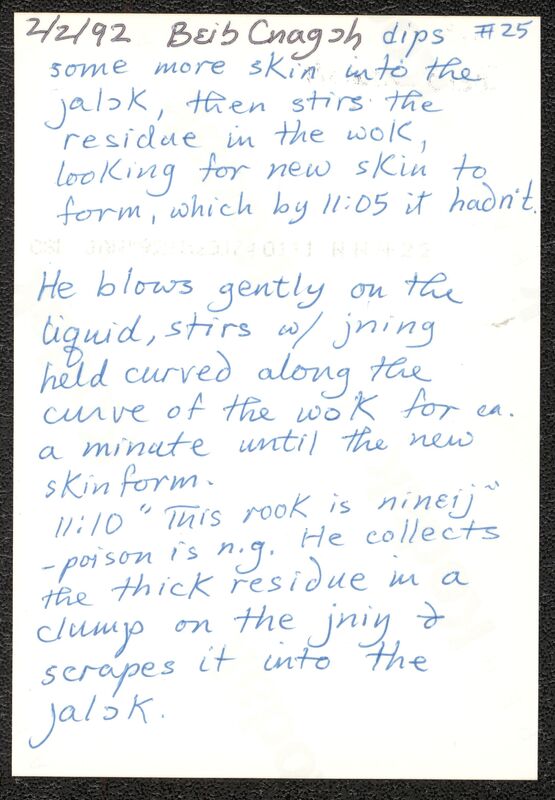 2/2/92 Bɛib Cnagɔh dips #25
some more skin into the
jalɔk, then stirs the
residue in the wok,
looking for new skin to
form, which by 11:05 it hadn't.
He blows gently on the
liquid, stirs w/ jning
held curved along the
curve of the wok for ea.
a minute until the new
skin form.
11:10 "This rook is ninɛij"
-poison is n.g. He collects
the thick residue in a
clump on the jniy &
scrapes it into the
jalɔk.